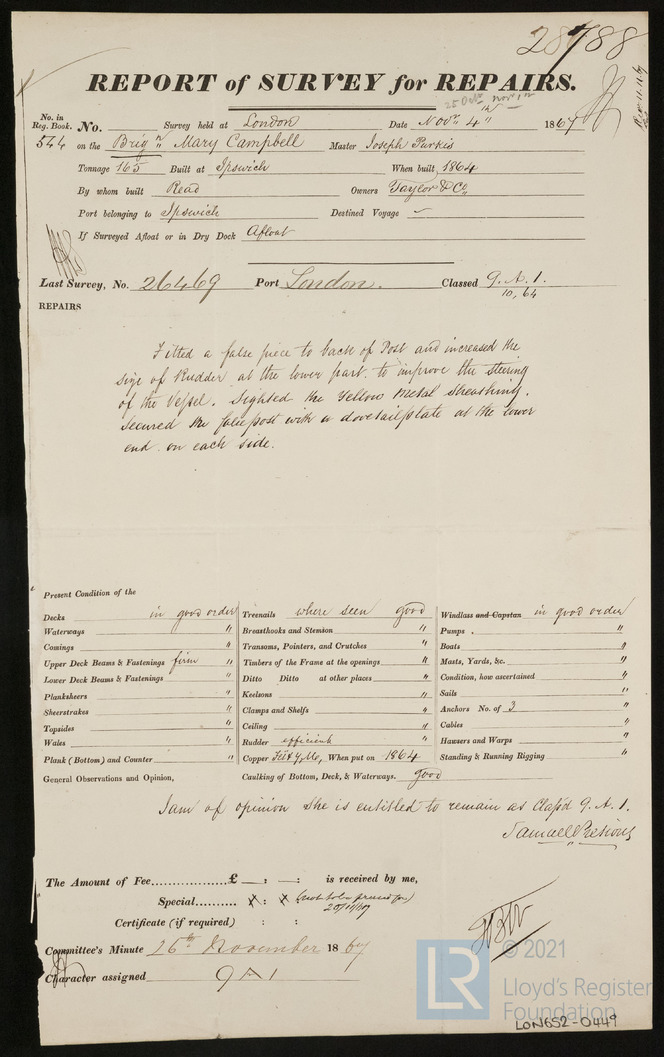 28788
REPORT of SURVEY for REPAIRS.
25 Octr Novr 1st
No. in Reg. Book. No. Survey held at London Date Novr 4th 1867
544 on the Brign Mary Campbell Master Joseph Purkis
Tonnage 165 Built at Ipswich When built 1864
By whom built Read Owners Taylor & Co
Port belonging to Ipswich Destined Voyage —
If Surveyed Afloat or in Dry Dock Afloat
Last Survey, No. 26469 Port London. Classed 9. A. 1.
10, 64
REPAIRS
Fitted a false piece to back of Post and increased the
size of Rudder at the lower part to improve the steering
of the Vessel. Sighted the Yellow Metal Sheathing.
Secured the false post with a dovetail plate at the lower
end on each side.
Present Condition of the
Decks in good order
Waterways "
Comings "
Upper Deck Beams & Fastenings firm "
Lower Deck Beams & Fastenings "
Planksheers "
Sheerstrakes "
Topsides "
Wales "
Plank (Bottom) and Counter "
Treenails where seen good
Breasthooks and Stemson "
Transoms, Pointers, and Crutches "
Timbers of the Frame at the openings "
Ditto Ditto at other places "
Keelsons "
Clamps and Shelfs "
Ceiling "
Rudder efficient "
Copper Felt & Y.M., When put on 1864
Caulking of Bottom, Deck, & Waterways. good
Windlass and Capstan in good order
Pumps . "
Boats "
Masts, Yards, &c. "
Condition, how ascertained "
Sails "
Anchors No. of 3 "
Cables "
Hawsers and Warps "
Standing & Running Rigging "
General Observations and Opinion,
I am of opinion she is entitled to remain as Class'd 9. A. 1.
Samuel Pretious
The Amount of Fee................£ - : - : is received by me,
Special.......... X : X (not to be pressed for)
25/11/67
Certificate (if required) : :
Committee's Minute 26th November 1867
Character assigned 9A1
© 2021
LR
Lloyd's Register
Foundation
LON652-0449